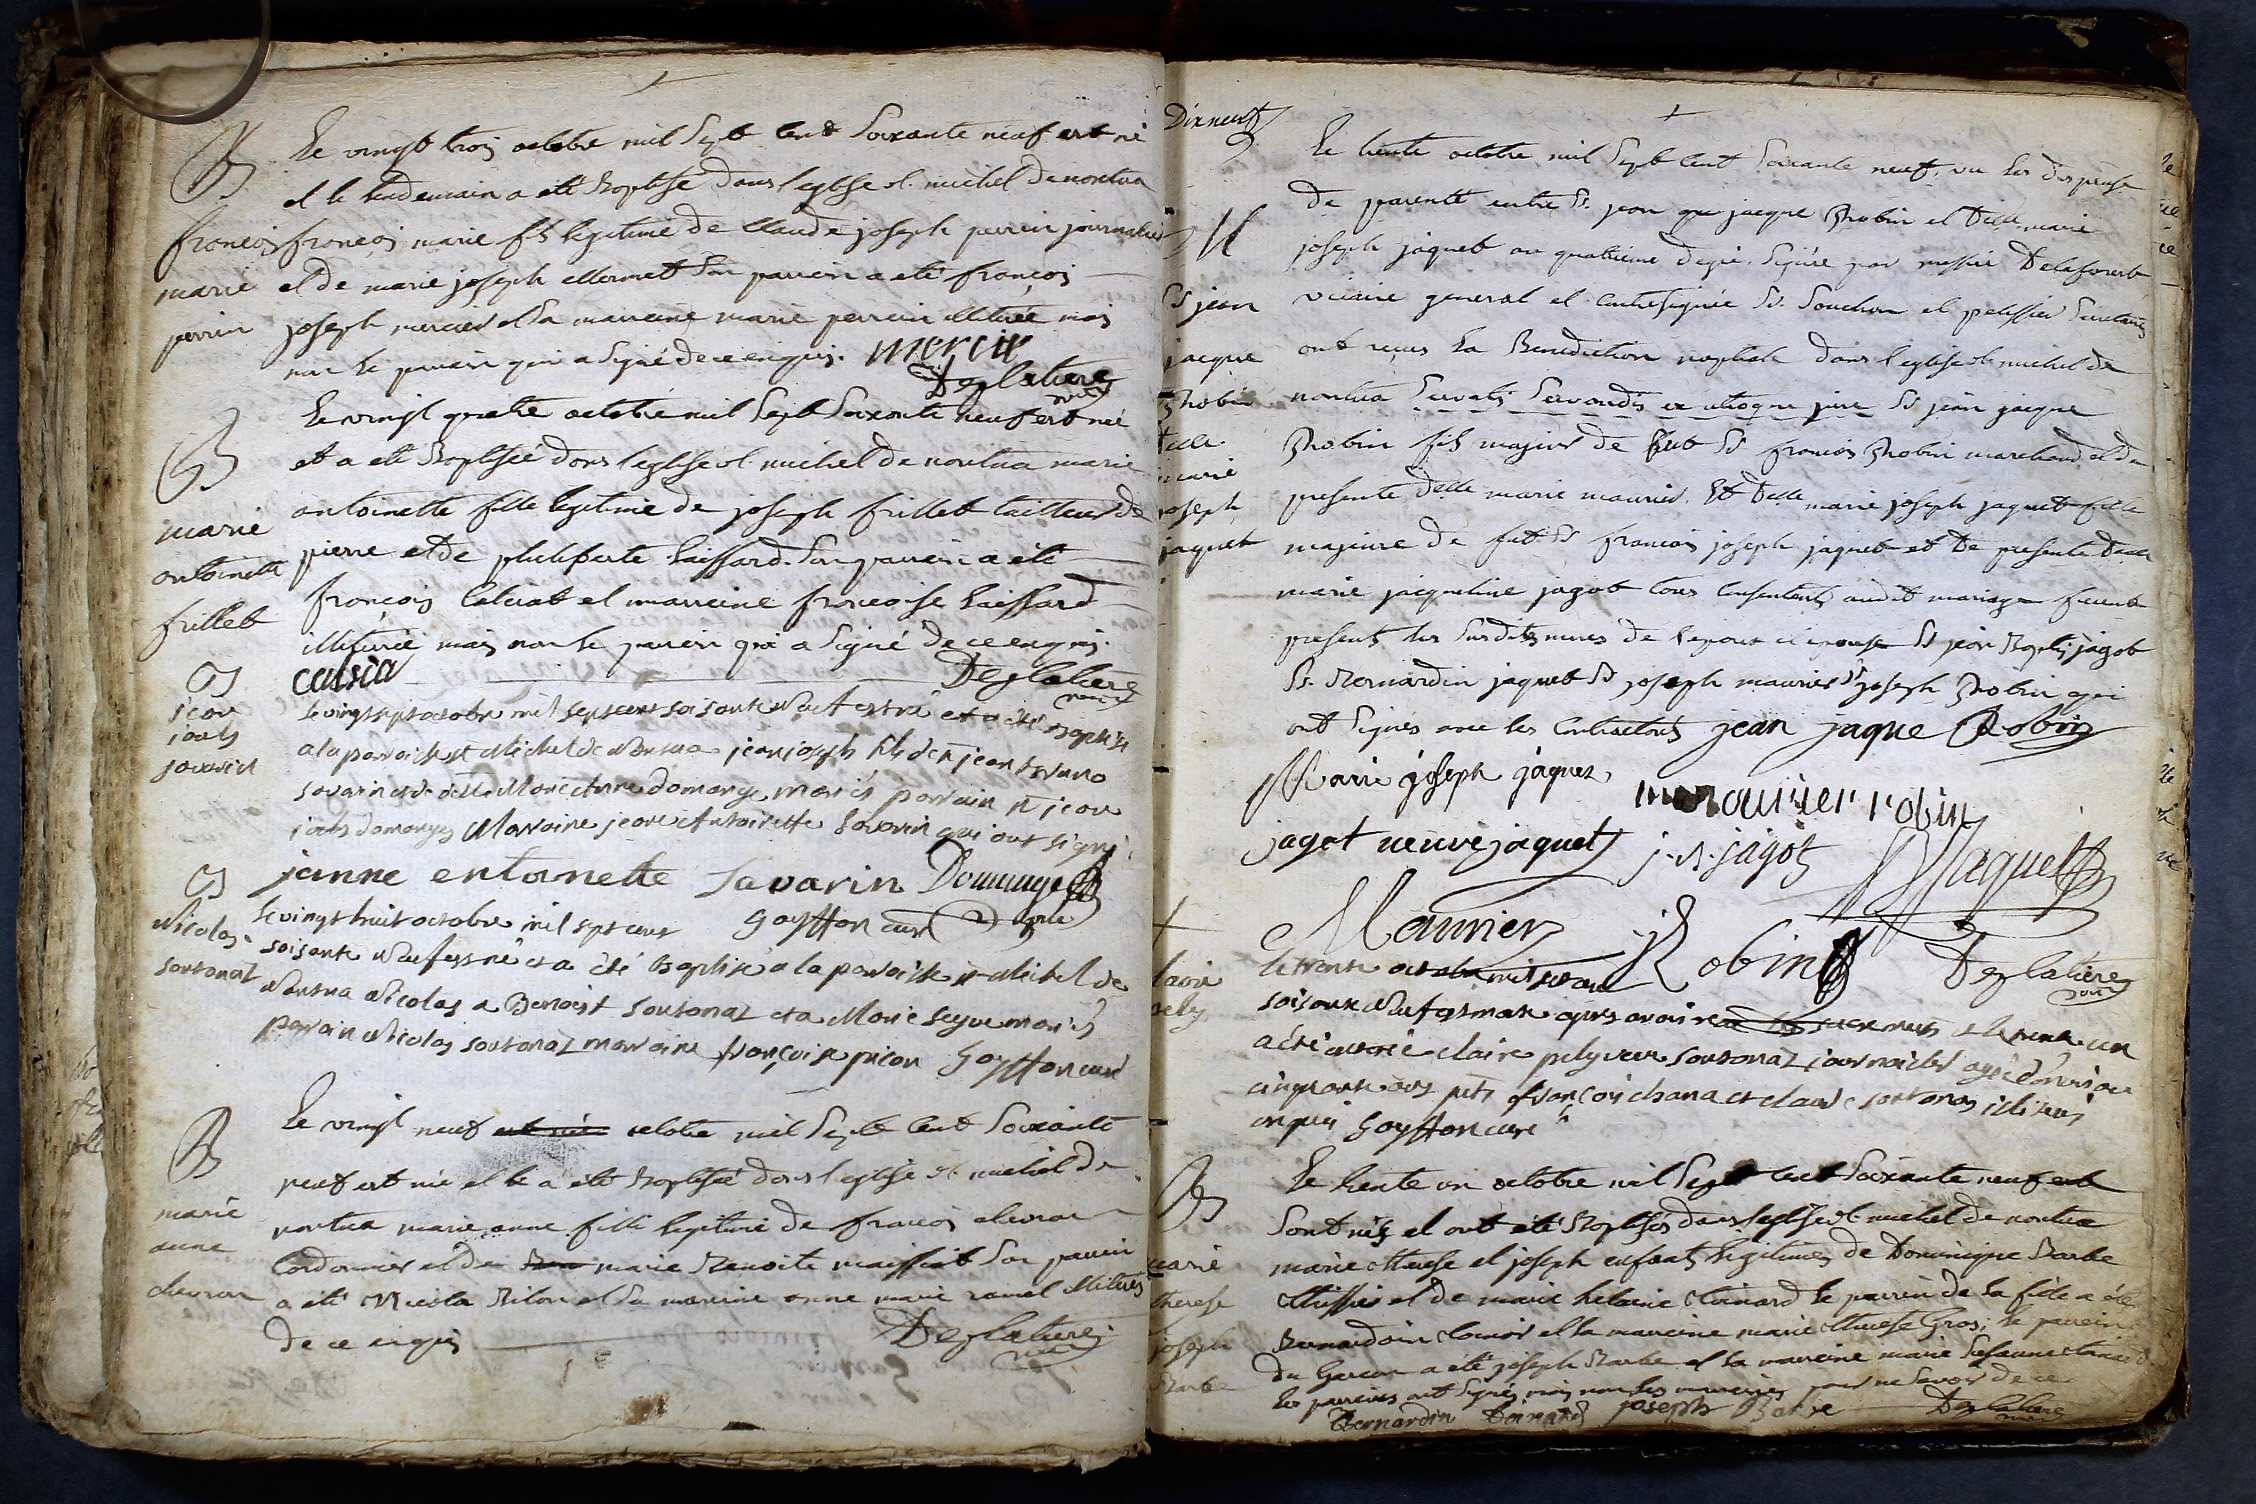 B
françois
marie
perrin
Le vingt trois octobre mil sept cent soixante neuf est né
et le lendemain a été Baptisé dans l'eglise st. michel de nantua
françois marie fils legitime de Claude joseph perrin journalier
et de marie joseph mermet son parrein a été françois
joseph mercier et sa marreine marie perrein illiterée mais
non le parrein qui a signé de ce enquis. mercier
Deglatiere
vic
B
marie
antoinette
frillet
Le vingt quatre octobre mil sept soixante neuf est née
et a été Baptisée dans l'eglise st. michel de nantua marie
antoinette fille legitime de joseph frillet tailleur de
pierre et de philiberte saissard. son parrein a été
françois et marreine françoise saissard
illiterée mais non le parrein qui a signé de ce enquis.
Deglatiere
vic
B
jean
jos
savarin
le vingt sept octobre mil sept cent soisante neuf est né et a été baptisé
a la paroisse st Michel de Nantua jean joseph fils de jean
savarin et de Marie Anne domange mariés parrain jean
jos domanges Marraine jeane Antoinette savarin qui ont signé
janne entoinette savarin Domange
goyffon curé
B
Nicolas
sontonaz
le vingt huit octobre mil sept cent
soisante neuf est né et a été baptisé a la paroisse st Michel de
Nantua Nicolas a Benoist sontonaz et a Marie mariés
parrain Nicolas sontonaz marraine françoise picon goyffon curé
B
marie
anne
chevron
Le vingt neuf est née octobre mil sept cent soixante
neuf est née et a été Baptisée dans l'eglise st michel de
nantua marie anne fille legitime de françois chevron
Cordonnier et de marie Benoite maissiat son parrein
a été Nicola Bilon et sa marreine anne marie ramel illiterés
de ce enquis
Deglatiere
vic
Dixneuf
M
Sr jean
jacque
Robin
delle
marie
joseph
jaquet
Le trente octobre mil sept cent soixante neuf, vu les dispense
de parenté entre sr. jean jacque Robin et delle marie
joseph jaquet au quatrieme degré, signée par messire Delaforest
vicaire general et contresignée sr. souchon et pelissier secretaires
ont reçus la Benediction nuptiale dans l'eglise st michel de
nantua servatis servandis ex utroque jure sr jean jacque
Robin fils majeur de feu sr françois Robin marchand et de
presente delle marie maurier. Et delle marie joseph jaquet fille
majeure de feu sr françois joseph jaquet et de presente delle
marie jacqueline jagot tous consentents audit mariage furent
presents les susdittes meres de l'epoux et epouse sr jean Baptiste jagot
sr. Bernardin jaquet sr joseph maurier sr joseph Robin qui
ont signés avec les contractants jean jaque Robin
Marie joseph jaquet
maurier robin
jagot veuve jaquet j. B. jagot Bjaquet
Maurier jRobin Deglatiere
vic
+
claire
pely
le trente octobre mil sept cent
soisante neuf est morte apres avoir les sacrements et le trente un
a été enterrée claire pely veuve sontonaz journailer agée d'environ
cinquante ans françois chana et claude sontonaz illiterés
enquis goyffon curé
B
marie
therese
joseph
Barbe
Le trente un octobre mil sept cent soixante neuf
sont nés et ont été Baptisés dans l'eglise st michel de nantua
marie therese et joseph enfants legitimes de Dominique Barbe
et de marie helaine Coinard le parrein de la fille a été
Bernardin Coinard et sa marreine marie therese Gros; le parrein
du Garcon a été joseph Barbe et sa marreine marie susanne Coinard
les parreins ont signés mais non les marreines pour ne savoir de ce
Bernardin Coinard joseph Barbe Deglatiere
vic